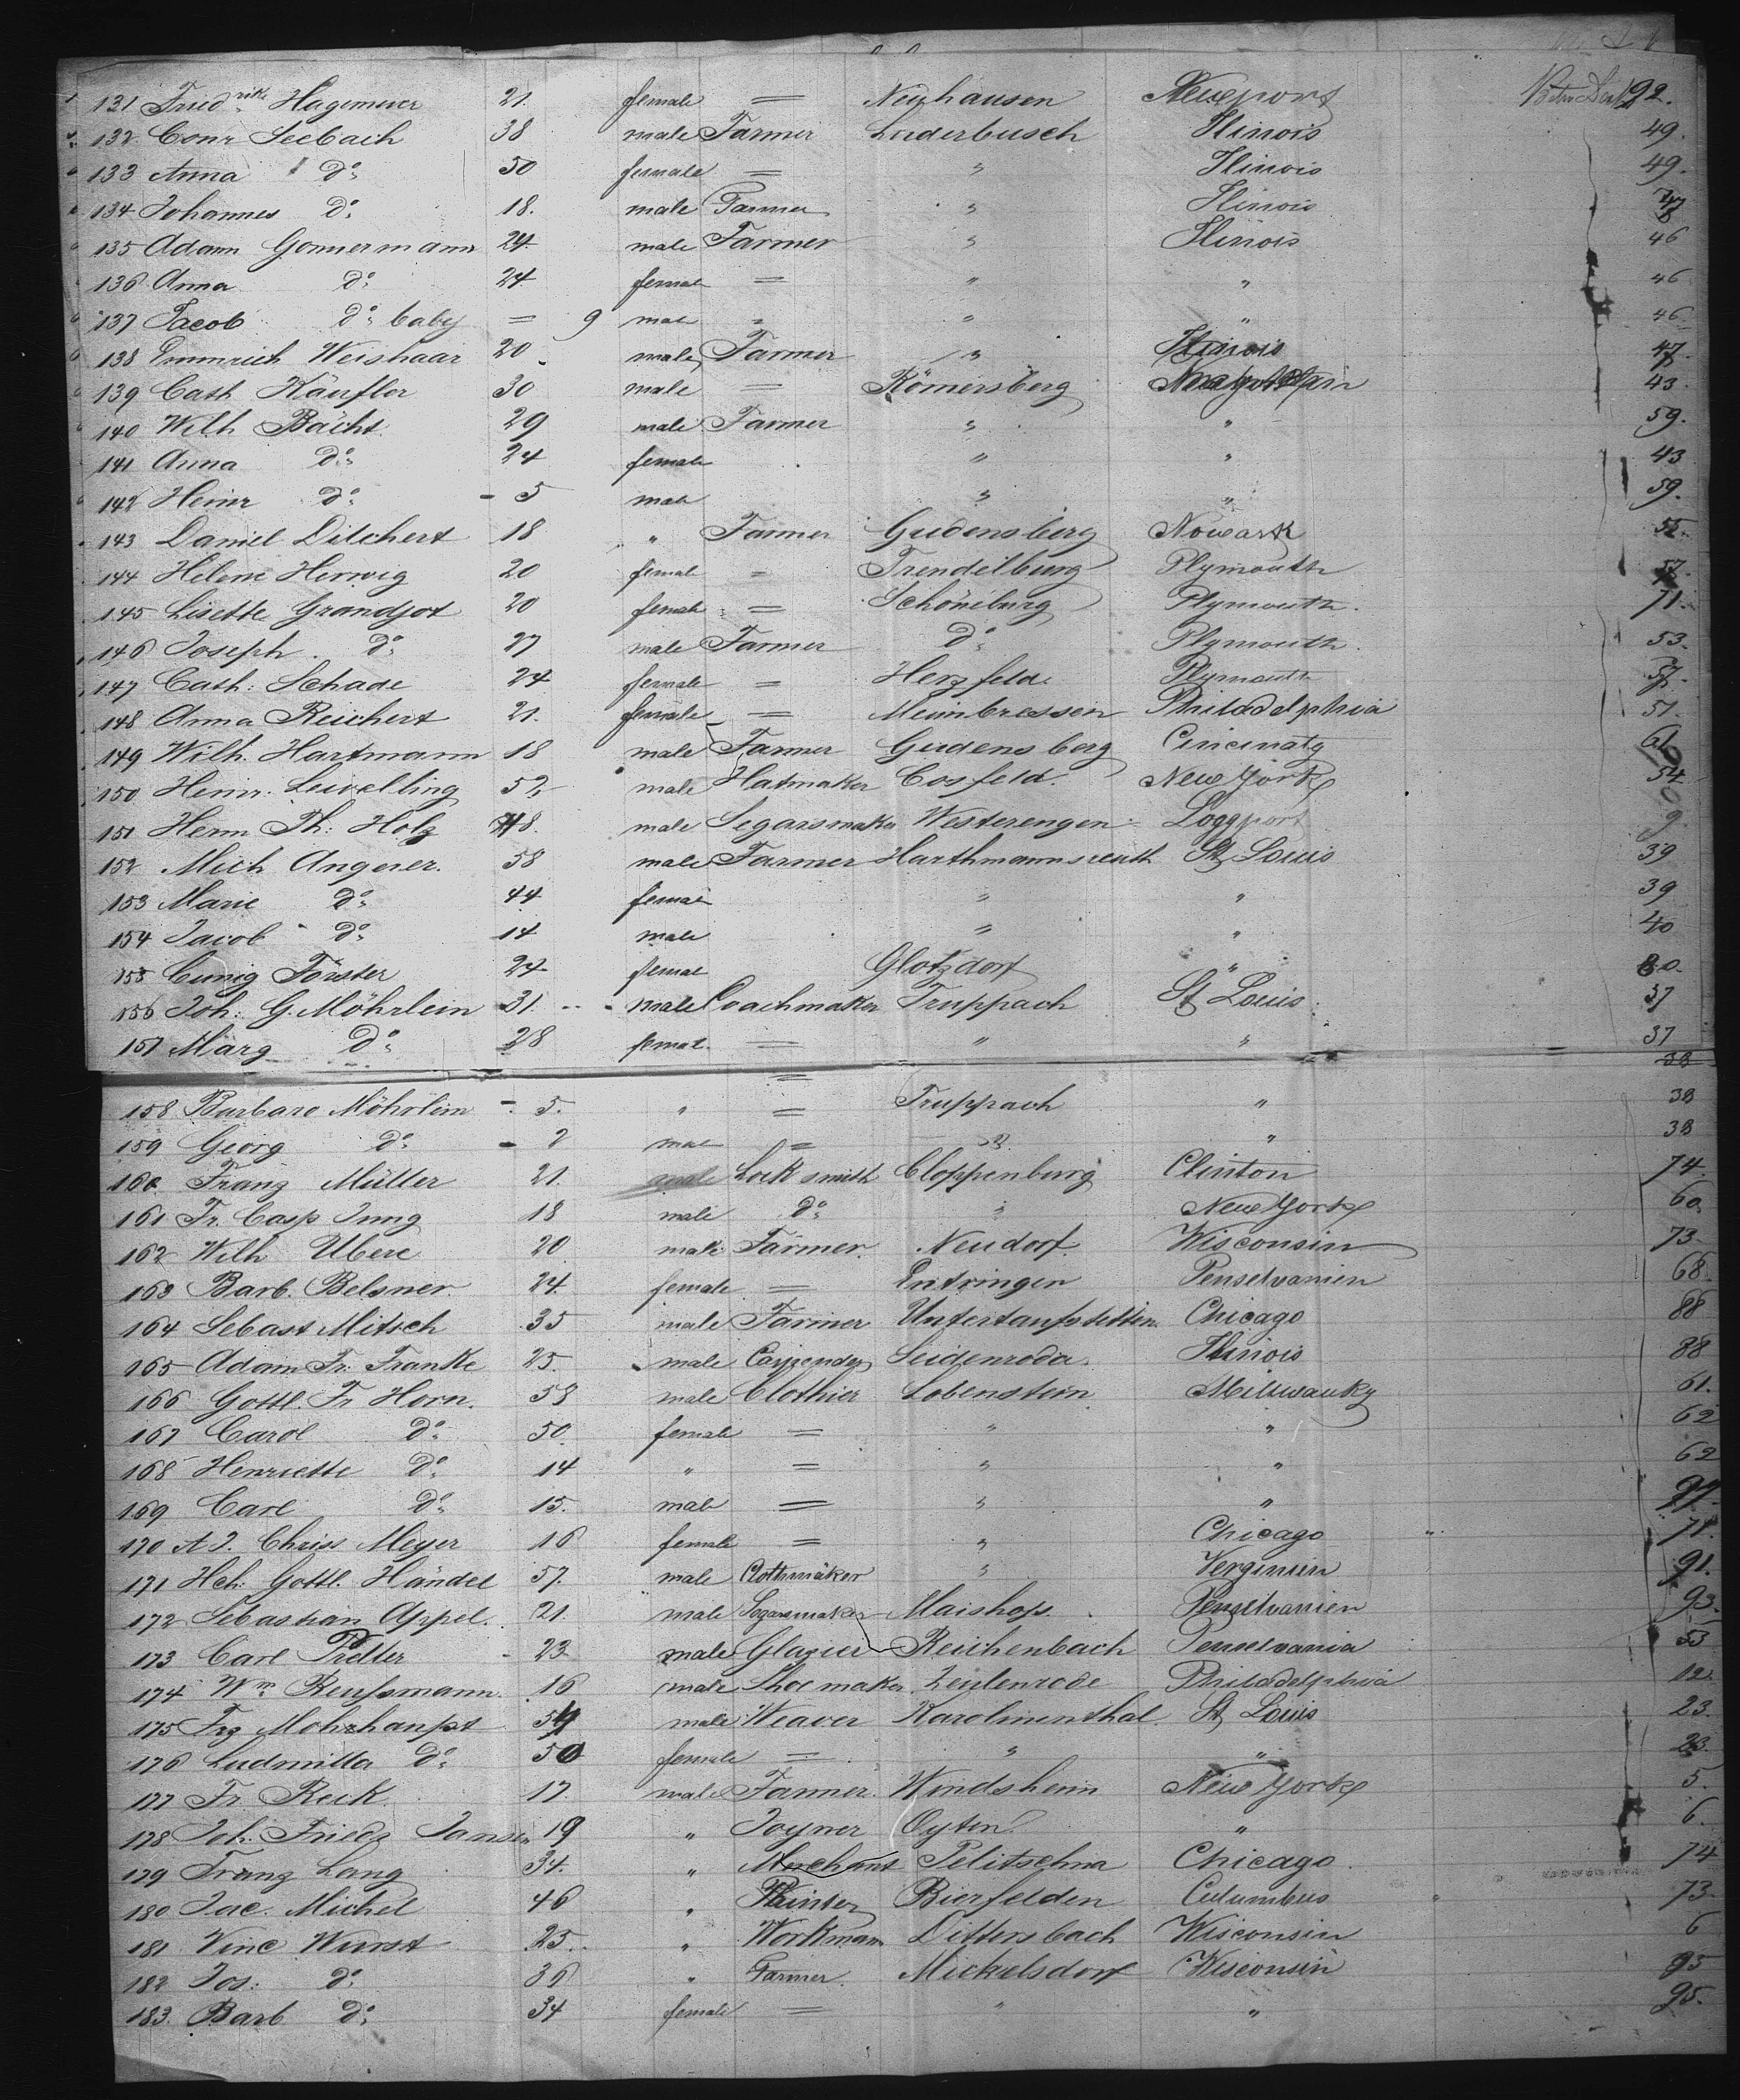 131 Fried.rike Hagemeier 21. female = Neuhausen Newport Betw Deck 92.
132 Conr Seebach 38 male Farmer Luderbusch Ilinois 49.
133 Anna do 50 female = " Ilinois 49.
134 Johannes do 18. male Farmer " Ilinois 47
135 Adam Gonnermann 24. male Farmer " Ilinois 46
136 Anna do 24 femal = " " 46
137 Jacob do baby = 9 mal " " " 46
138 Emmrich Weishaar 20 male Farmer " Ilinois 47.
139 Cath Käufler 30 male = Römersberg 43.
140 Wilh Bächt 29 male Farmer " " 59.
141 Anna do 24 female " " 43
142 Heinr do - 5 male " " 59.
143 Daniel Dilchert 18 " Farmer Gudensberg Nowark 55.
144 Helene Herwig 20 femal = Trendelburg Plymouth 57.
145 Lisette Grandjot 20 female = Schöneburg Plymouth. 71.
146 Joseph do 27 male Farmer do Plymouth. 53.
147 Cath: Schade 24 female = Herzfeld. Plymouth 57.
148 Anna Reichert 21. female = Meimbressen Philadelphia 51.
149 Wilh. Hartmann 18 male Farmer Gudensberg Cincinaty 61
150 Heinr. Leivelling 52 male Hatmaker Cosfeld. New York 54
151 Herm Th: Holz 48. male Segarsmaker Westerengen Loggport 9.
152 Mich Angerer. 58 male Farmer Harthmannsreuth St Louis 39
153 Marie do 44 femal " " 39
154 Jacob do 14 male " " 40
155 Cunig Förster 24 femal Glotzdorf " 80.
156 Joh: G. Möhrlein 31. male Coachmaker Truppach St Louis. 37
157 Marg do 28 femal. = " " 37
= 38
158 Barbara Möhrlein - 5. " = Truppach " 38
159 Georg do - 2 male = " " 38
160. Franz Müller 21. male Locksmith Cloppenburg Clinton 74.
161 Fr. Casp Jung 18 male do " New York 60.
162 Wilh Ubere 20 male Farmer. Neudorf. Wisconsin 73.
163 Barb. Belsner. 24. female = Entringen Penselvanien 68.
164 Sebast Mitsch 35 male Farmer Untertaufstetten Chicago 88
165 Adam Fr. Franke 25. male Carpender Seidenroda. Ilinois 88
166 Gottl. Fr Horn. 58 male Clothier Lobenstein Millwauky 61.
167 Carol do 50. female = " " 62
168 Henriette do 14 " = " " 62
169 Carl do 15. male = " " 97.
170 A J. Chriss Meyer 16 female = " Chicago 71.
171 Hch: Gottl. Händel 57. male Clothmäker " Verginien 91.
172 Sebastian Appel. 21. male Segarsmaker Maishofs. Penselvanien 93.
173 Carl Pretter 23. male Glazier Reichenbach Penselvania 53
174 Wm Reufsmann. 16 male Shoemaker Zeulenrode Philadelphia 12.
175 Frz Mohrhaupt 54 male Weaver Karolinenthal. St Louis 23.
176 Ludmilla do 50 female = " " 23.
177 Fr. Reck. 17. male Farmer. Windsheim New York 5.
178 Joh. Friedr Jansen 19 " Joyner Oyten " 6.
179 Franz Lang 34. " Merchant Pelitschna Chicago. 74
180 Jac. Michel 46 " Painter Bierfelden Culumbus 73.
181 Vinc Wurst 25. " Workman Dittersbach Wisconsin 6
182 Jos: do 36 " Farmer. Mickelsdorf Wisconsin 95
183. Barb do 34 female = " " 95.